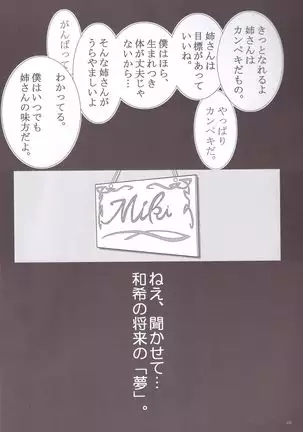 きっとなれるよ
姉さんは
カンペキだもの。
やっぱり
カンペキだ。
姉さんは
目標があって
いいね。
僕はほら、
生まれつき
体が丈夫じゃ
ないから…
そんな姉さんが
うらやましいよ
がんばって。
わかってる。
僕はいつでも
姉さんの味方だよ。
Miki
ねえ、聞かせて…
和希の将来の「夢」。